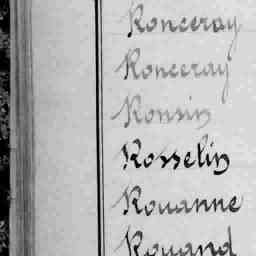 Ronceray
Ronceray
Ronsin
Rosselin
Rouanne
Rouand